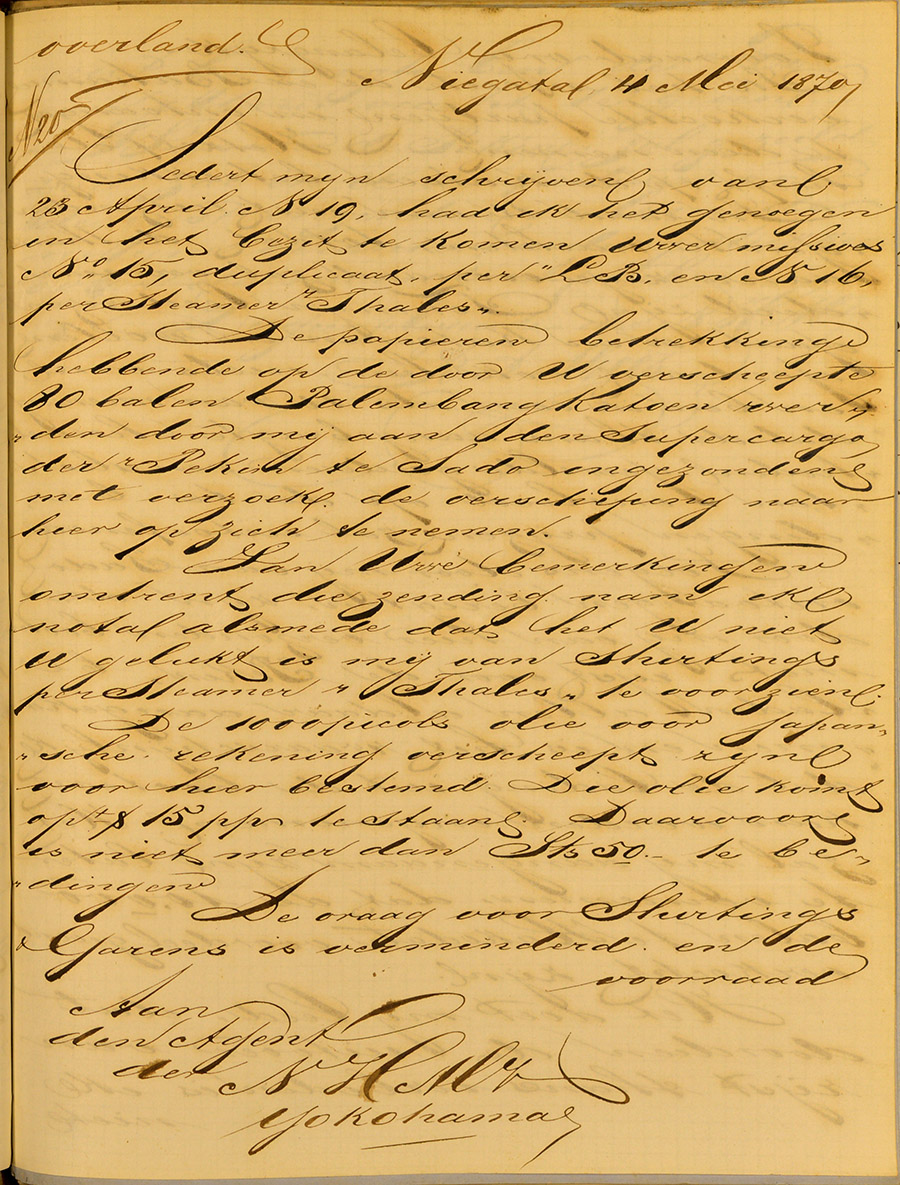 overland.
Niegata, 4 Mei 1870,
N 20
Sedert mijn schrijven van
23 April N 19, had ik het genoegen
in het bezit te komen Uwer missives
No 15, duplicaat, per "L B. en N 16,
per Steamer "Thales".
De papieren betrekking
hebbende op de door U verscheepte
80 balen Palembang Katoen wer
"den door mij aan den Supercargo
der "Pekin te Sado ingezonden
met verzoek de verscheping naar
hier op zich te nemen.
Van Uwe bemerkingen
omtrent die zending nam ik
nota alsmede dat het U niet
U gelukt is mij van Shirtings
per Steamer "Thales" te voorzien.
De 1000 picols olie voor Japan"
"sche rekening verscheept zijn
voor hier bestemd. Die olie komt
op $ 15 pp te staan. Daarvoor
is niet meer dan 50.- te be"
"dingen
De vraag voor Shirtings
& Garens is verminderd en de
voorraad
Aan
den Agent
der N H M
Yokohama